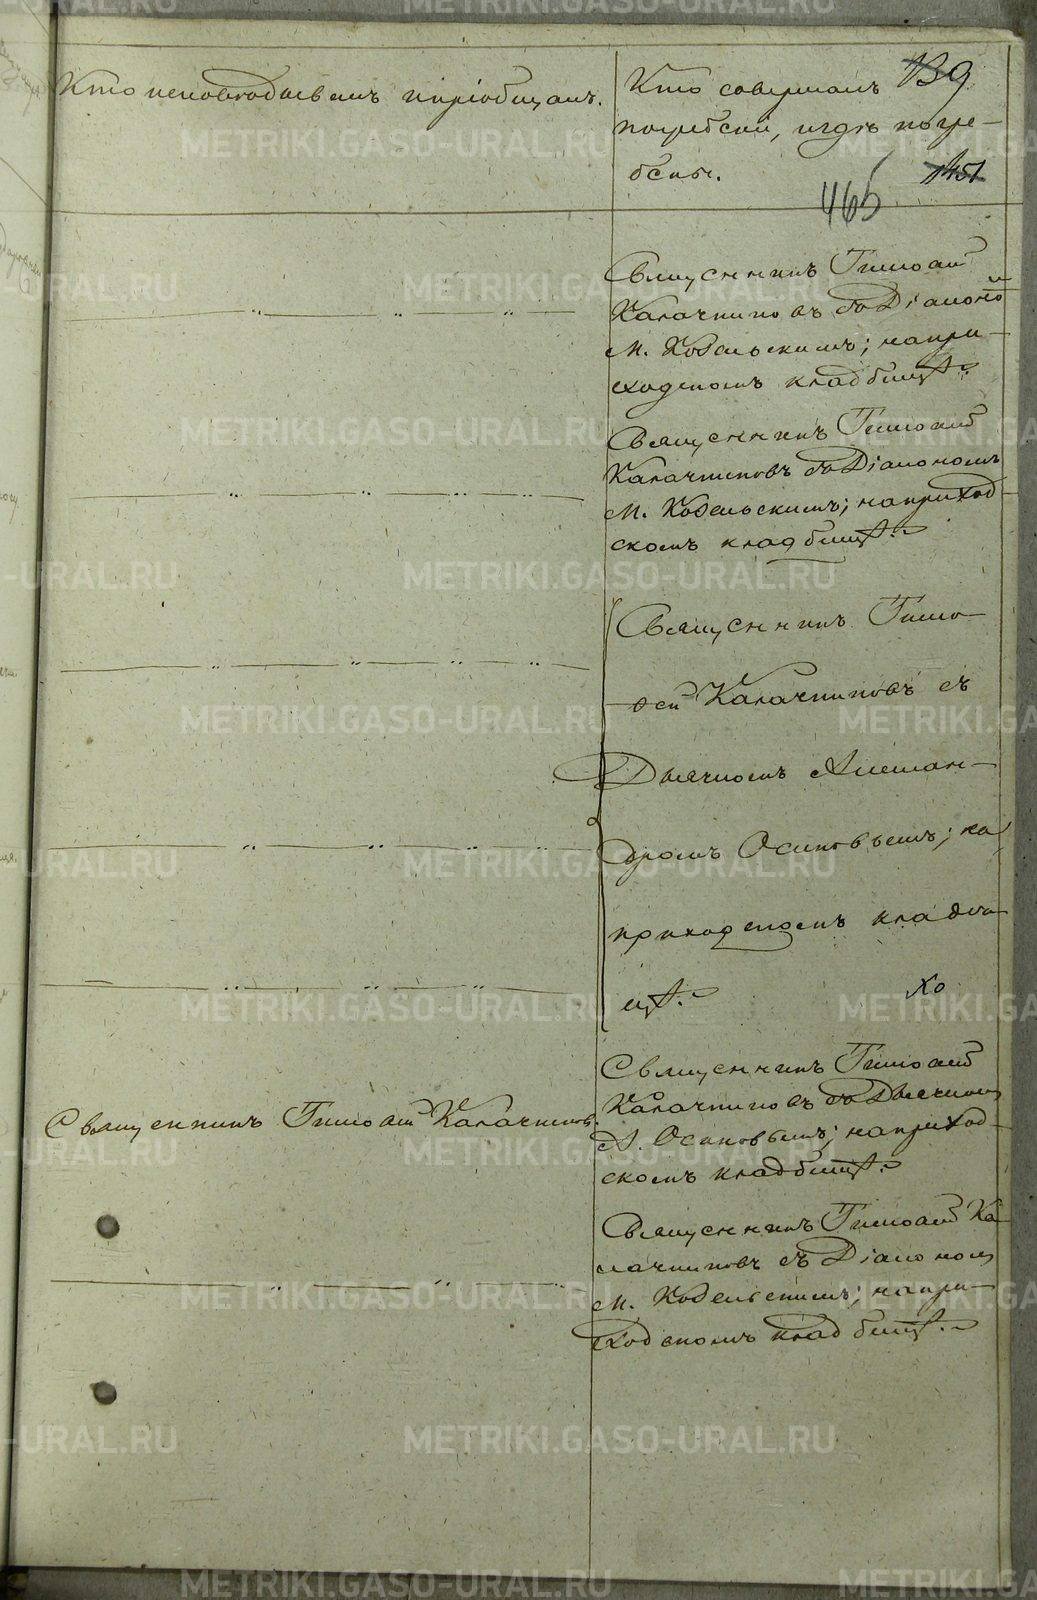 Кто исповѣдывалъ и пріобщалъ.
Кто совершалъ
погребеніе, и гдѣ погре-
бены.
139
1451
465
Священникъ Тимоѳей
Калачниковъ съ Діакономъ
М. Ковельскимъ; на при-
ходскомъ кладбищѣ.
Священникъ Тимоѳей
Калачниковъ съ Діакономъ
М. Ковельскимъ; на приход-
скомъ кладбищѣ.
Священникъ Тимо-
ѳей Калачниковъ съ
Дьячкомъ Алексан-
дромъ Осиповымъ; на
приходскомъ кладби-
щѣ.
Священникъ Тимоѳей Калачниковъ.
Священникъ Тимоѳей
Калачниковъ съ Дьячкомъ
А. Осиповымъ; на приход-
скомъ кладбищѣ.
Священникъ Тимоѳей Ка-
лачниковъ съ Діакономъ
М. Ковельскимъ; на при-
ходскомъ кладбищѣ.
METRIKI.GASO-URAL.RU